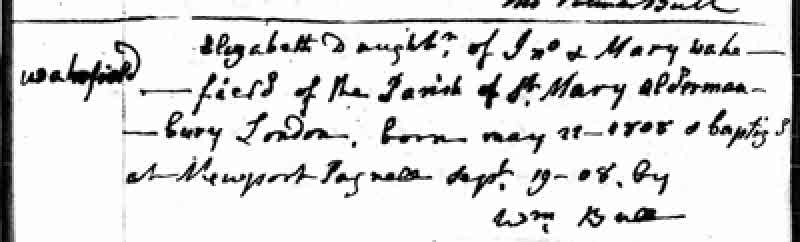 Wm Bull
Wakefield
Elizabeth Daughtr. of Jno & Mary Wake—
—field of the Parish of St. Mary Alderman-
—bury London, born may 22-1808 & baptizd
at Newport Pagnell Sept. 19-08. by
Wm Bull